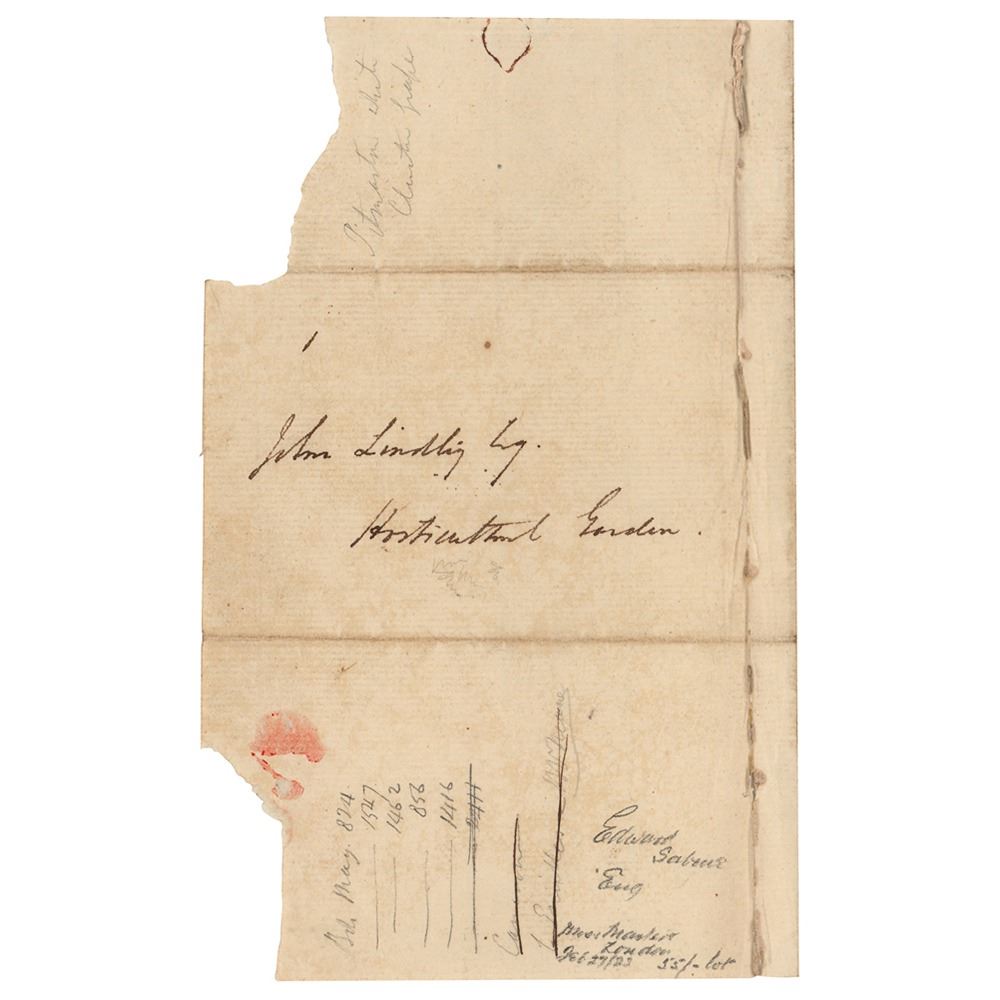 Pitmaston white
Cluster grape
John Lindley Esq.
Horticultural Garden.
Bot. Mag. 824
1547
1462
856
1416
2411
Edward
Sabine
Eng
Miss Masters
London
Feb 27/23 55/- lot